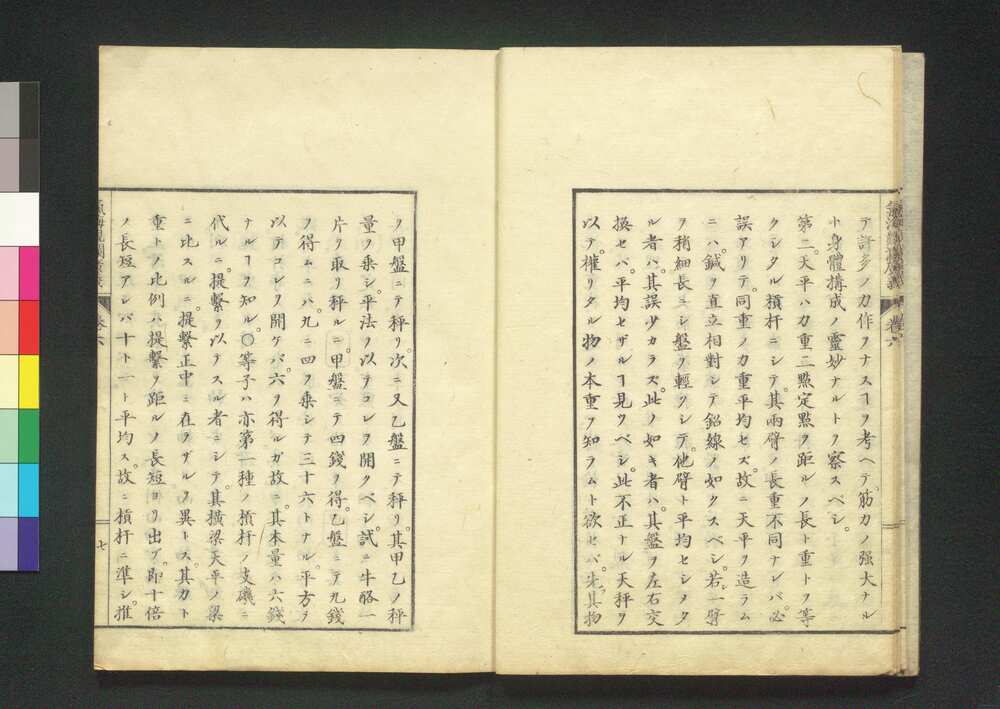 テ許多ノカ作ヲナスヿヲ考ヘテ。筋力ノ强大ナル
ト身體構成ノ靈妙ナルトヲ察スベシ。
第二。天平ハ力重二點定點ヲ距ルノ長ト重トヲ等
クシタル槓杆ニシテ。其兩臂ノ長重不同ナレバ。必
誤アリテ。同重ノ力重平均セズ。故ニ天平ヲ造ラム
ニハ。鍼ヲ直立相對シテ鉛線ノ如クスベシ。若一臂
ヲ稍細長ニシ盤ヲ輕クシテ。他臂ト平均セシメタ
ル者ハ。其誤少カラズ。此ノ如キ者ハ。其盤ヲ左右交
換セバ。平均セザルヿ見ツベシ。此不正ナル天秤ヲ
以テ。權リタル物ノ本重ヲ知ラムト欲セバ。先其物
ヲ甲盤ニテ秤リ。次ニ又乙盤ニテ秤リ。其甲乙ノ秤
量ヲ乘シ。平法ヲ以テコレヲ開クベシ。試ニ牛酪一
片ヲ取リ秤ルニ。甲盤ニテ四錢ヲ得。乙盤ニテ九錢
ヲ得ムニハ。九ニ四ヲ乘シテ三十六トナル。平方ヲ
以テコレヲ開ケバ。六ヲ得ルガ故ニ。其本量ハ六錢
ナルヿヲ知ル。〇等子ハ亦第一種ノ槓杆ノ支礙ニ
代ルニ。提繫ヲ以テスル者ニシテ。其橫梁天平ノ梁
ニ比スルニ。提繫正中ニ在ラザルヲ異トス。其力ト
重トノ比例ハ提繫ヲ距ルノ長短ヨリ出ヅ。即十倍
ノ長短アレバ十ト一ト平均ス。故ニ槓杆ニ準シ。推
卷六
七